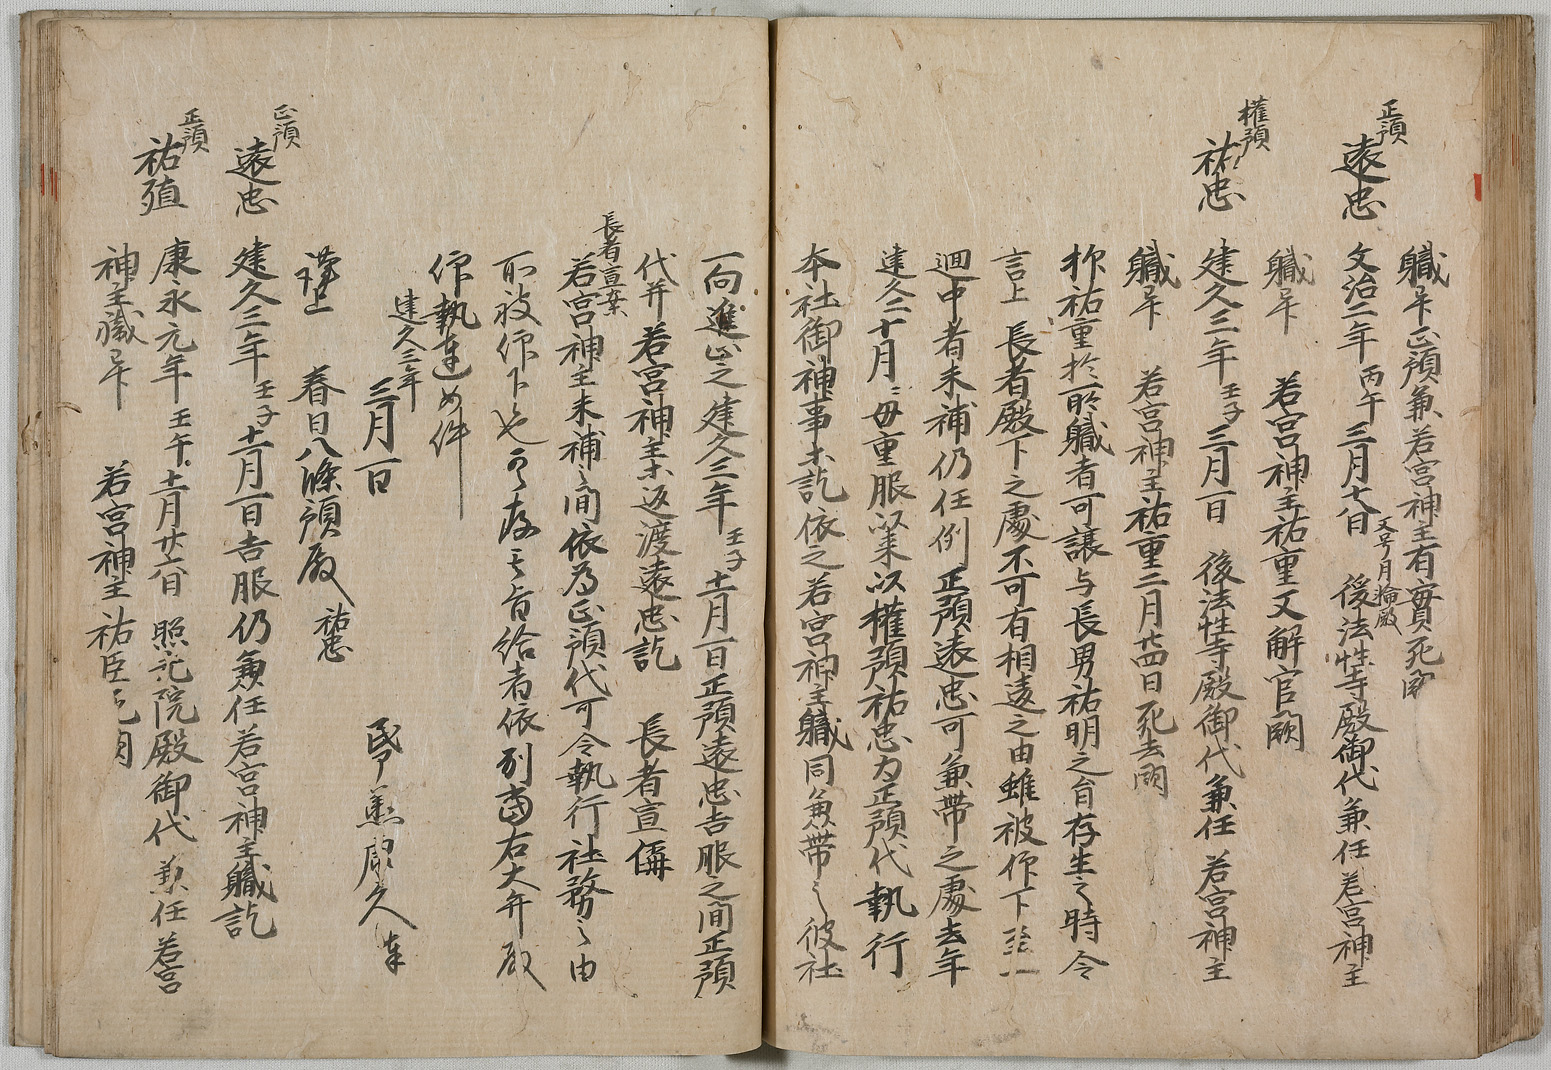 職畢正預兼若宮神主有實死闕
正預
遠忠
文治二年丙午三月十六日 後法性寺殿御代兼任若宮神主
職畢 若宮神主祐重又解官闕
權預
祐忠
建久三年壬子三月一日 後法性寺殿御代兼任 若宮神主
職畢 若宮神主祐重二月廿四日死去闕
抑祐重於所職者可譲与長男祐明之旨存生之時令
言上 長者殿下之處不可有相違之由雖被仰下
廻中者未補仍任例正預遠忠可兼帯之處去年
建久二十月 母重服以来以權預祐忠為正預代執行
本社御神事等訖依之若宮神主職同兼帯之彼社
一向進止之建久三年壬子十一月一日正預遠忠吉服之間正預
代并若宮神主等返渡遠忠訖 長者宣偁
長者宣案
若宮神主未補之間依為正預代可令執行社務之由
所被仰下也可存其旨給者依別當右大弁殿
仰執達如件
建久三年
三月一日 民部丞
謹上 春日八條預殿 祐忠
正預
遠忠
建久三年壬子十一月一日吉服仍兼任若宮神主職訖
正預
祐殖
康永元年壬午十一月廿六日 照光院殿御代兼任若宮
神主職畢 若宮神主祐臣